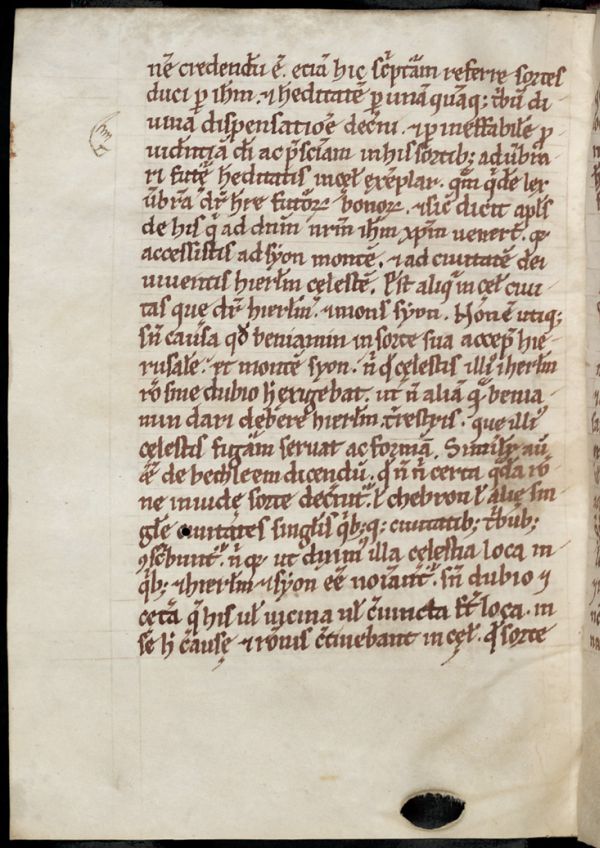 nē credendū ē. etiā hic sc̄ptām referre sortes
duci ꝑ ihm̄. ⁊ hēditatē ꝑ unāquāq; tⁱbū di
uinā dispensatiōe dec̄ni. ⁊ ꝑ ineffabilē ꝓ
uidentiā dī ac p̄sciam in his sortib; adūbra
ri futē hēditatis in cęł exēplar. qm̄ qⁱdē lex
ūbrā dr̄ hr̄e futōꝝ bonoꝝ. ⁊ sic̄ dicit apłs
de his qⁱ ad dnm̄ nrm̄ ihm̄ xp̄m uener̄t. qᷓ
accessistis ad syon montē. ⁊ ad ciuitatē dei
uiuentis hierłm celestē. Est aliqᷓ in cęł ciui
tas que dr̄ hierłm. ⁊ mons syon. Non ē utiq;
sn̄ causa qđ beniamin in sorte sua accep̄ hie
rusalē. et montē syon. n̄ qᷓ celestis illiꝰ iherłm
rō sine dubio h̄ exigebat. ut n̄ aliā qᷓ benia
min dari deberē hierłm t̄restris. que illiꝰ
celestis figām seruat ac formā. Similiꝉ aū
ē de bethleem dicendū. qᷓ n̄ n̄ certa qᷓda rō
ne iuudę sorte dec̄niꝉ. ł chebron ł alię sin
głę ciuitates singłis qⁱb;q; ciuitatib; tⁱbub;
ꝯsc̄bunꝉ. n̄ qᷓ ut diximꝰ illa celestia loca in
qⁱb; ⁊ hierłm ⁊ syon eē noiānꝉ. sn̄ dubio ⁊
cetā qᷓ his uł uicina uł c̄iuncta st̄ loca. in
sē h̄ causę ⁊ rōnis c̄tinebant in cęł. qᷓ sorte